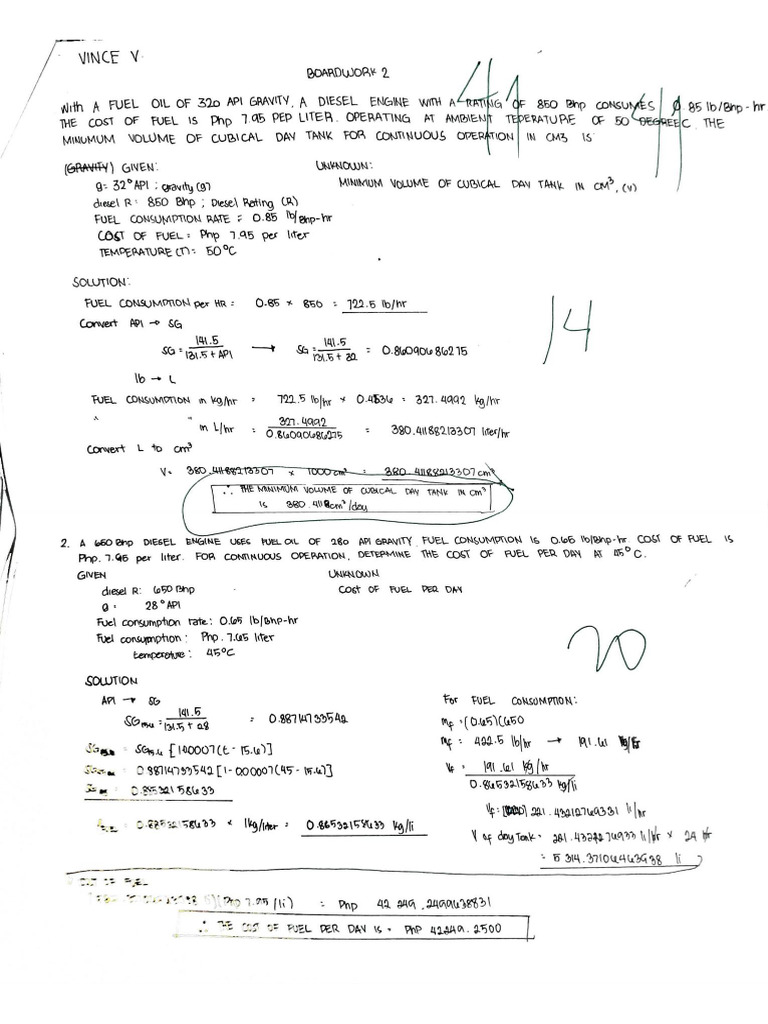 VINCE V.
BOARDWORK 2
With A FUEL OIL OF 320 API GRAVITY, A DIESEL ENGINE WITH A RATING OF 850 Bhp CONSUMES 0.85 lb/Bhp-hr.
THE COST OF FUEL IS Php 7.95 PEP LITER. OPERATING AT AMBIENT TEPERATURE OF 50 DEGREE C. THE
MINUMUM VOLUME OF CUBICAL DAY TANK FOR CONTINUOUS OPERATION IN CM3 IS
(GRAVITY) GIVEN: UNKNOWN:
g= 32° API ; gravity (g) MINIMUM VOLUME OF CUBICAL DAY TANK IN CM³, (V)
diesel R: 850 Bhp ; Diesel Rating (R)
FUEL CONSUMPTION RATE = 0.85 lb/Bhp-hr
COST OF FUEL: Php 7.95 per liter
TEMPERATURE (T): 50°C
SOLUTION:
FUEL CONSUMPTION per HR = 0.85 × 850 = 722.5 lb/hr
Convert API → SG
SG = 141.5 / 131.5 + API → SG = 141.5 / 131.5 + 32 = 0.86090686275
14
lb → L
FUEL CONSUMPTION in kg/hr = 722.5 lb/hr × 0.4536 = 327.4992 kg/hr
" " in L/hr = 327.4992 / 0.86090686275 = 380.41188213307 liter/hr
Convert L to cm³
V= 380.41188213307 × 1000 cm³ = 380.41188213307 cm³
∴ THE MINIMUM VOLUME OF CUBICAL DAY TANK IN cm³
IS 380.4118cm³/day
2. A 650 Bhp DIESEL ENGINE USES FUEL OIL OF 280 API GRAVITY. FUEL CONSUMPTION IS 0.65 lb/Bhp-hr. COST OF FUEL IS
Php. 7.95 per liter. FOR CONTINUOUS OPERATION, DETERMINE THE COST OF FUEL PER DAY AT 45°C.
GIVEN UNKNOWN
diesel R: 650 Bhp COST OF FUEL PER DAY
g = 28° API
Fuel consumption rate: 0.65 lb/Bhp-hr
Fuel consumption : Php. 7.65 liter
temperature: 45°C
20
SOLUTION
API → SG For FUEL CONSUMPTION:
SG = 141.5 / 131.5 + 28 = 0.88714733542 mf = (0.65)(650
mf = 422.5 lb/hr → 191.61 kg/hr
= SG15.6 [1-0.0007(t - 15.6)]
= 0.88714733542 [1-0.0007(45-15.6)] Vf = 191.61 kg/hr / 0.86532158633 kg/li
= 0.86532158633
Vf = 221.43212769331 li/hr
0.86532158633 × 1kg/liter = 0.86532158633 kg/li
V of day Tank = 221.4321276933 li/hr × 24 hr
= 5 314.37106463938 li
COST OF FUEL
(Php 7.95 /li) = Php 42 249.2499638831
∴ THE COST OF FUEL PER DAY IS = PHP 42249.2500